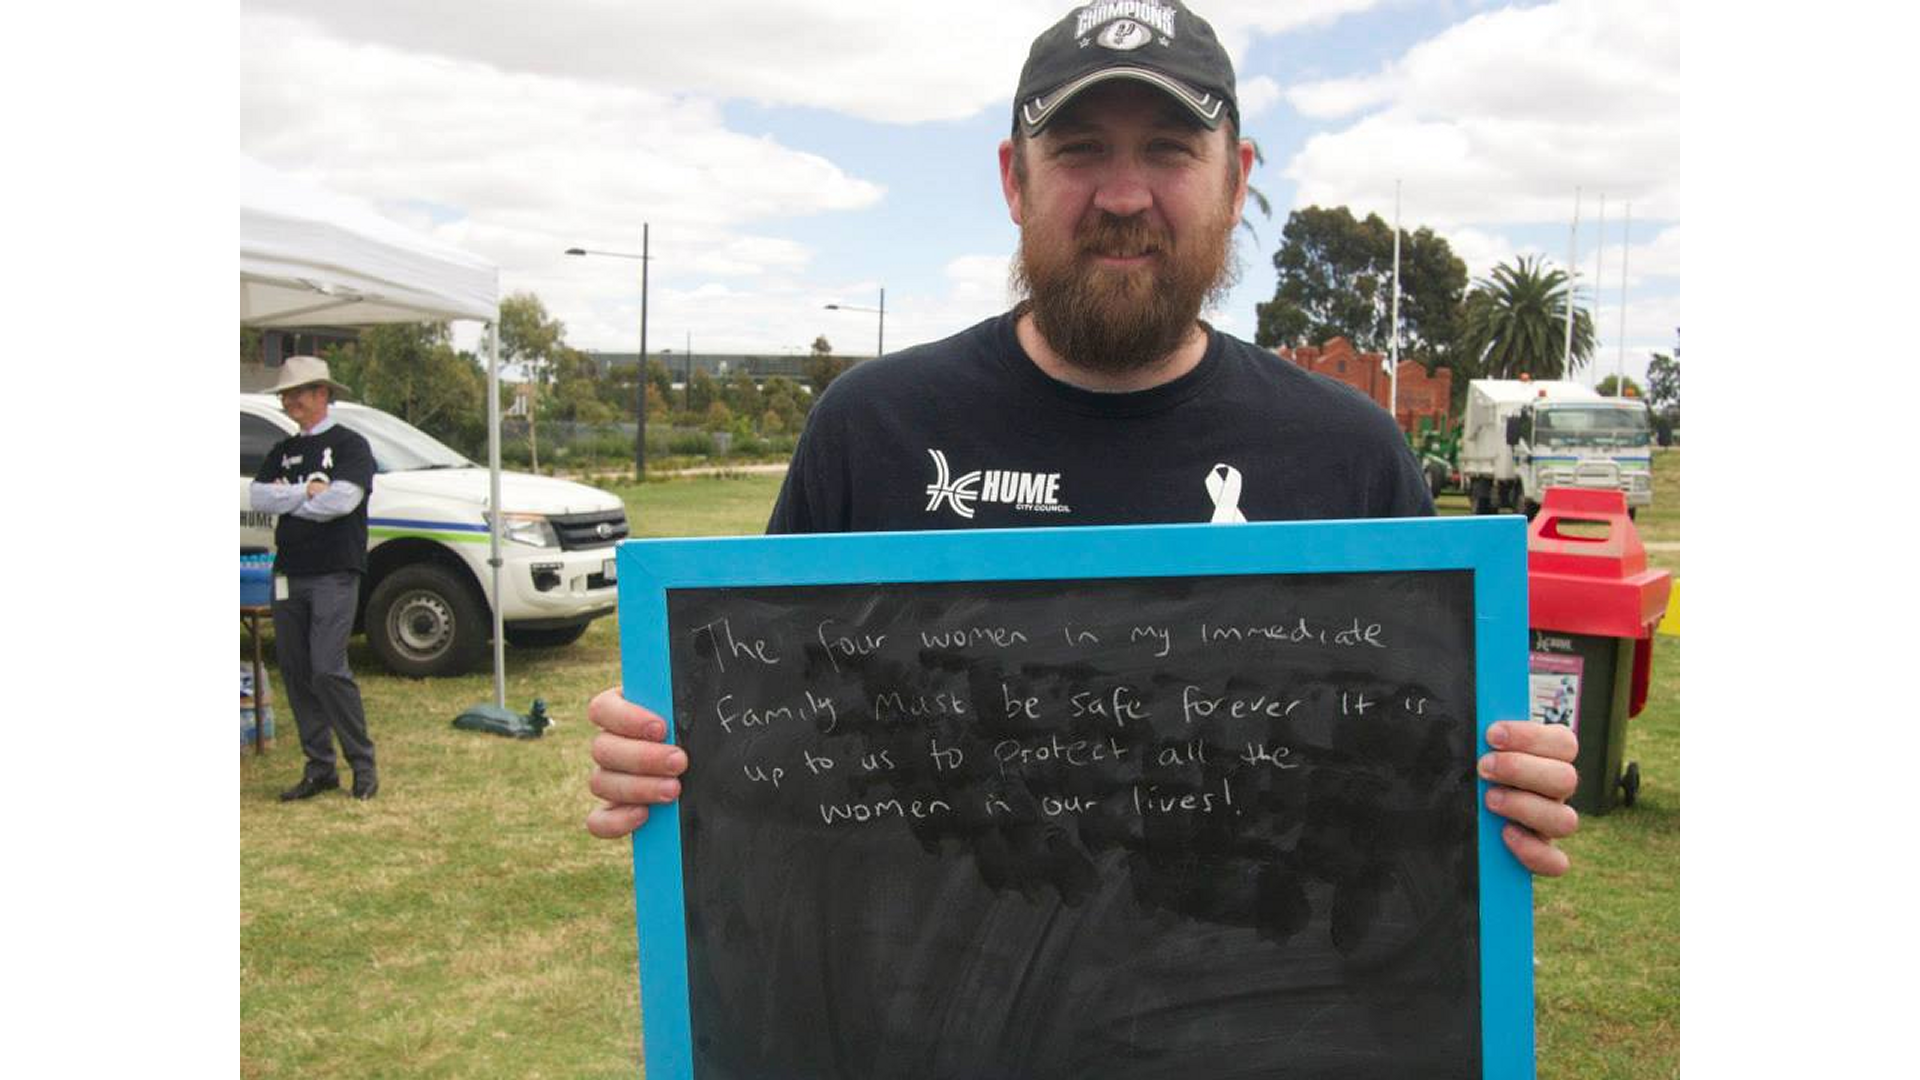 CHAMPIONS
HUME
CITY COUNCIL
HUME
HUME
HUME
The four women in my immediate
family must be safe forever It is
up to us to protect all the
women in our lives!